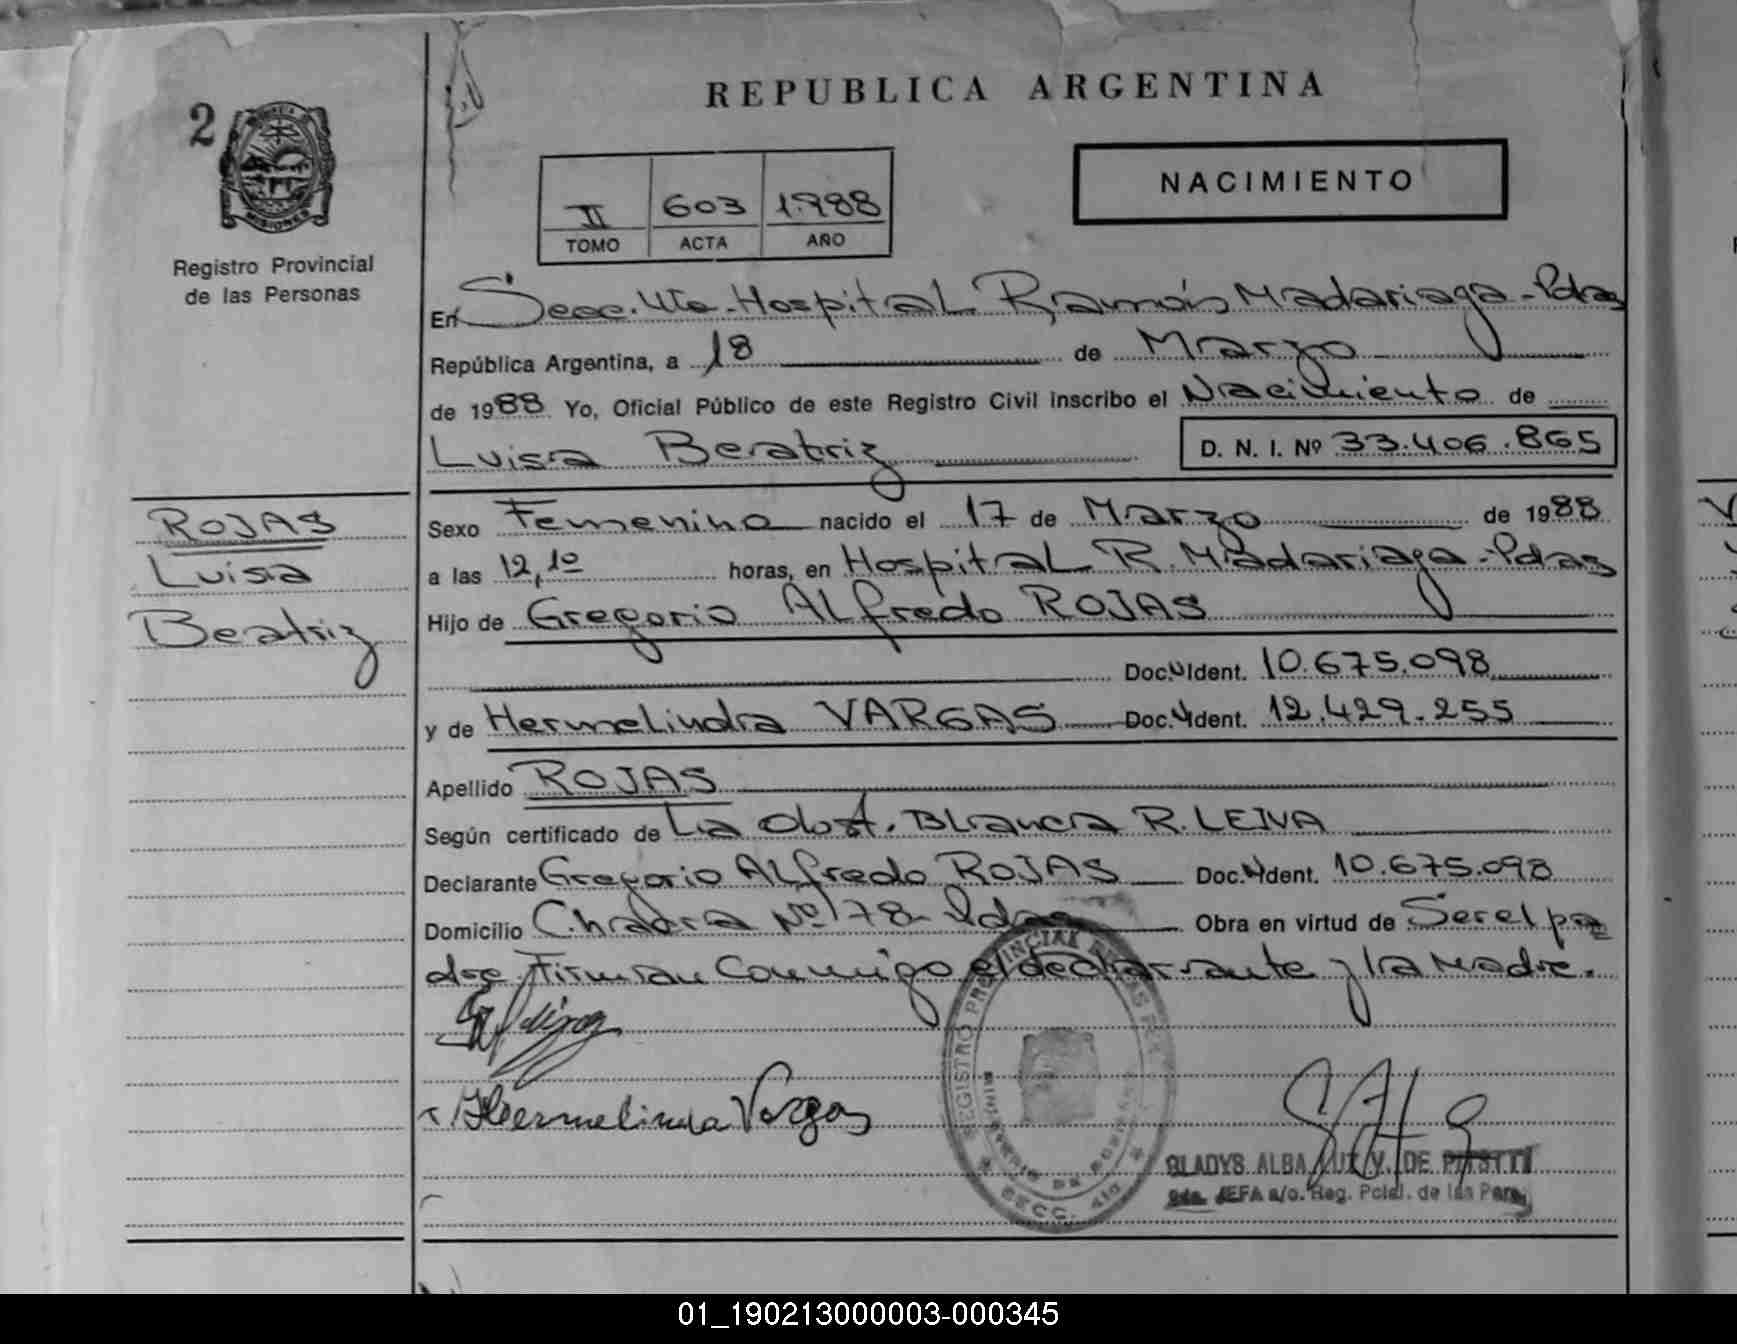 REPUBLICA ARGENTINA
2
MISIONES
Registro Provincial
de las Personas
II 603 1.988
TOMO ACTA AÑO
NACIMIENTO
En Secc. 4ta. Hospital Ramón Madariaga - Pdas
República Argentina, a 18 de Marzo
de 1988 Yo, Oficial Público de este Registro Civil inscribo el Nacimiento de
Luisa Beatriz D. N. I. Nº 33.406.865
ROJAS
Luisa
Beatriz
Sexo Femenino nacido el 17 de Marzo de 1988
a las 12,10 horas, en Hospital R. Madariaga - Pdas
Hijo de Gregorio Alfredo ROJAS
Doc. Ident. 10.675.098
y de Hermelinda VARGAS Doc. Ident. 12.429.255
Apellido ROJAS
Según certificado de La Obst. Blanca R. LEIVA
Declarante Gregorio Alfredo ROJAS Doc. Ident. 10.675.098
Domicilio Chacra Nº 178 - Pdas Obra en virtud de Ser el pa
dre. Firman Conmigo el declarante y la Madre.
Hermelinda Vargas
REGISTRO PROVINCIAL DE LAS PER
MINISTERIO DE GOBIERNO
SECC. 4ta
GLADYS ALBA LUZ V. DE
2da. JEFA a/c. Reg. Pcial. de las Pers.
01_190213000003-000345